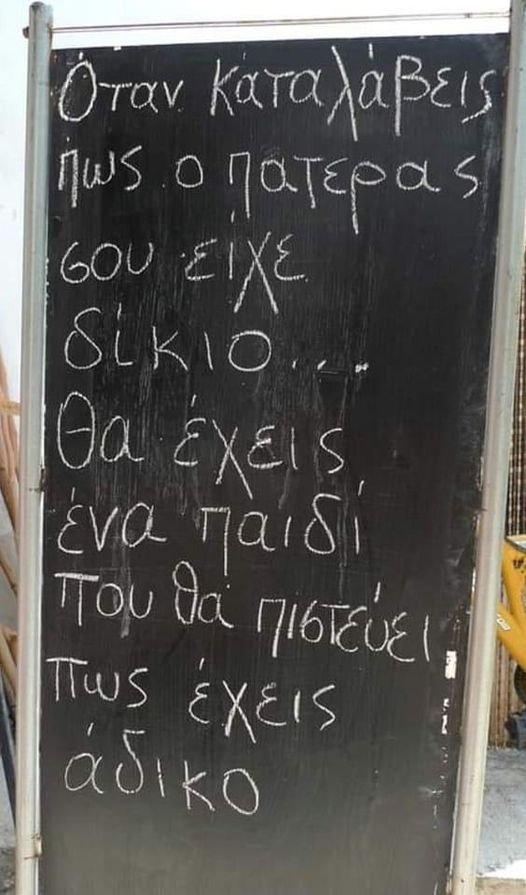 Όταν καταλάβεις
πως ο πατερας
σου είχε
δίκιο...
θα έχεις
ένα παιδί
που θα πιστεύει
πως έχεις
άδικο